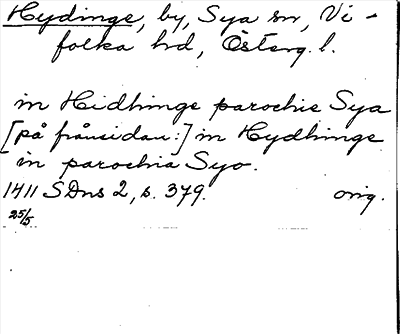 Hydinge, by, Sya sn, Vi-
folka hd, Österg. l.
in Hidhinge parochie Sya
[på frånsidan:] in Hydhinge
in parochia Syo.
1411 SDns 2, s. 379. orig.
25/5